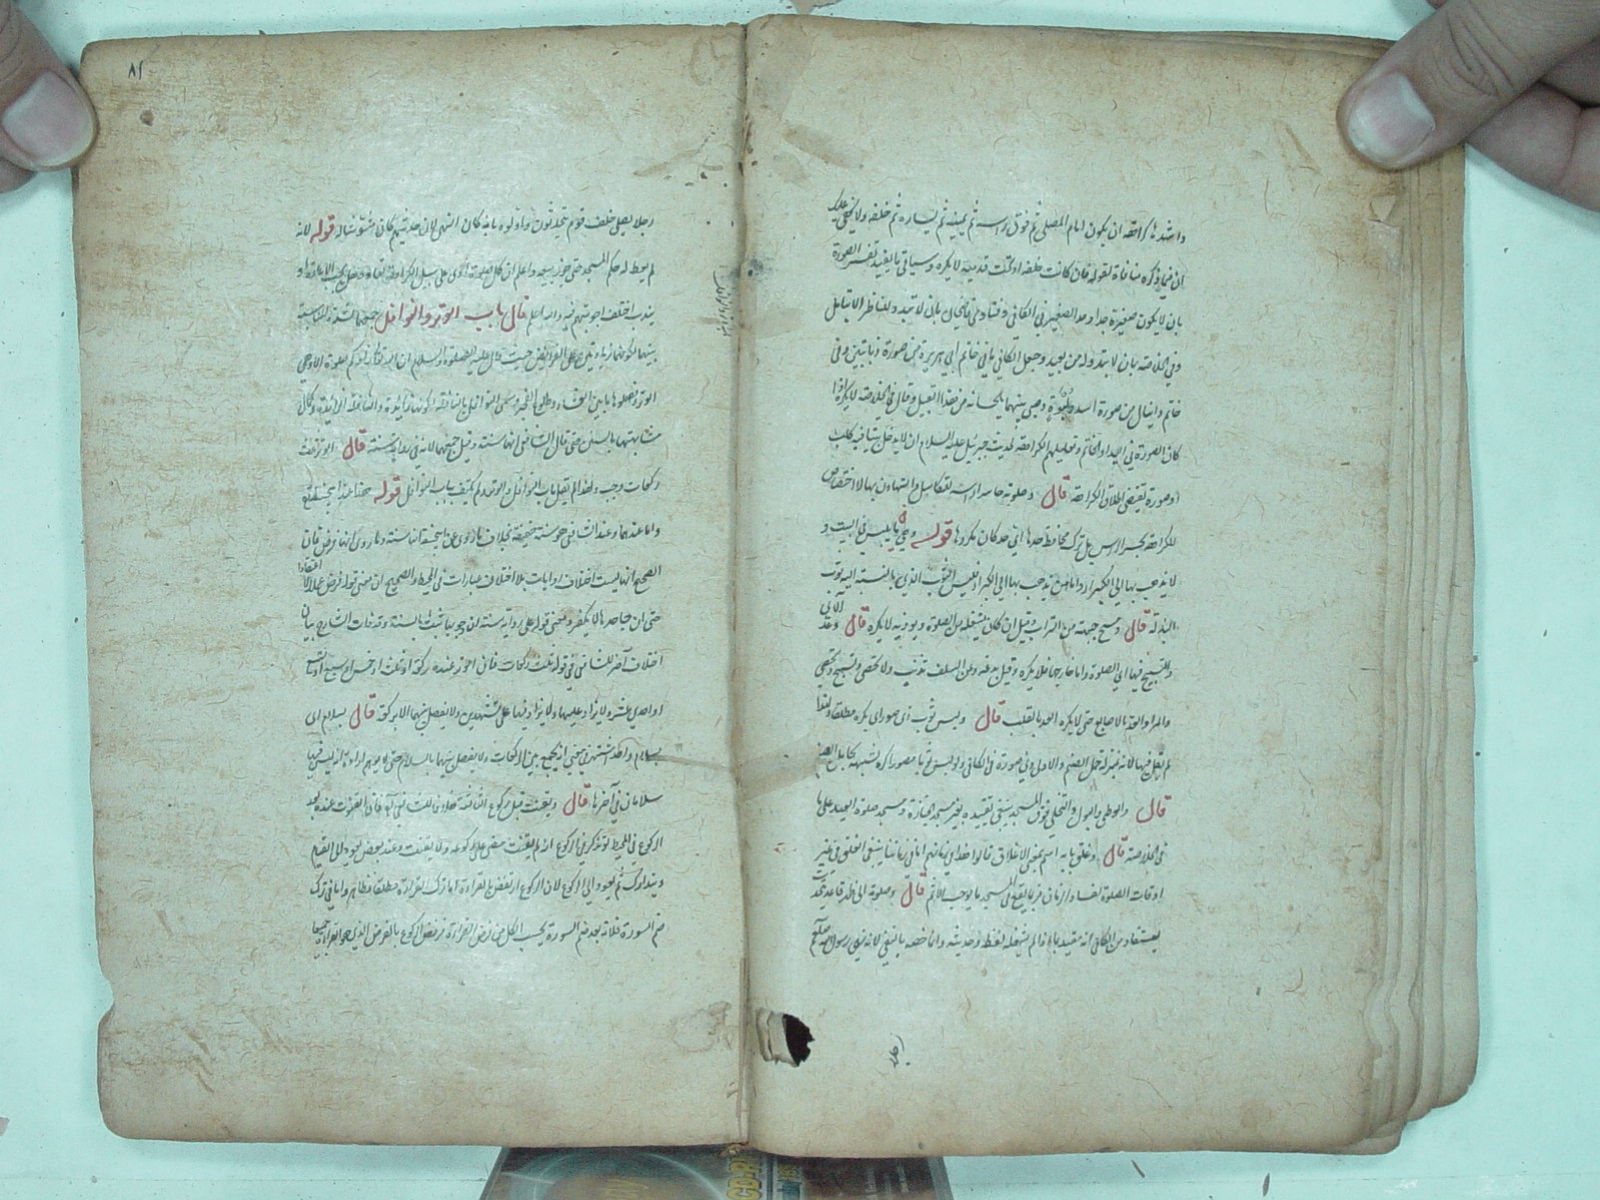 واشدها كراهة ان يكون امام المصلى ثم فوق راسه ثم يمينه ثم يساره ثم خلفه ولا يخفى عليك
ان فيما ذكره منافاة لقوله فان كانت خلفه او تحت قدميه لا يكره وسياتي ما يفيد تفسير الصورة
بان لا يكون صغيرة جدا وحد الصغير في الكافي وفتاوى قاضيخان بان لا تبدو للناظر الا بتامل
وفي الخلاصة بان لا يتدو له من بعيد وجعل الكافي ما في خاتم ابي هريرة من صورة ذبابتين وفي
خاتم دانيال من صورة اسد ولبوة وصبي بينهما يلحسانه من هذا القبيل وقال في الخلاصة لا يكره اذا
كان الصورة في اليد او الخاتم وتعليلهم الكراهة لحديث جبرئيل عليه السلام ان لا يدخل بيتا فيه كلب
او صورة تقتضي اطلاق الكراهة قال وصلوته حاسرا راسه للتكاسل والتهاون بها لا اختصاص
للكراهة بحسر الراس بل ترك محافظة حدها اي حد كان مكروها قوله وهي ما يلبس في البيت و
لا يذهب بها الى الكبير اراد اما من يذهب بها الى الكبراء فليس الثوب الذي بالنسبة اليه ثوب
البذلة قال ومسح جبهته من التراب وقيل ان كان يشغله من الصلوة ويوذيه لا يكره قال وعد الآي
والتسبيح فيها اي الصلوة واما خارجها فلا يكره وقيل بدعة وعن السلف نذنب ولا نحصي ونسبح ونحصي
والمراد العد بالاصابع حتى لا يكره العد بالقلب قال ولبس ثوب اي صوراى يكره مطلقا ولو لذا
لم يقل فيها لانه بمنزلة حمل الصنم والاول وفي صورة في الكافي ولو لبس ثوبا مصورا كره لشبهه بحامل الصنم
قال والوطئ والبول والتخلي فوق المسجد ينبغي تقييده بغير مسجد الجنازة ومسجد صلوة العيد على ما
في الخلاصة قال وغلق بابه اسم بمعنى الاغلاق قالوا هذا في زمانهم اما في زماننا ينبغي الغلق في غير
اوقات الصلوة لفساد الزمان فربما يقع في المسجد ما يوجب الاثم قال وصلوة الى ظهر قاعد يتحدث
يستفاد من الكافي انه مقيد بما اذا لم يشغله لغط وحديثه وانما خصه بالنفي لانه نهى رسول الله صلعم
رجلا
٨٩
رجلا يصلي خلف قوم يتحدثون واولوه بانه كان النهي لان حديثهم كان مشوشا له قوله لانه
لم يعط له حكم المسجد حتى جوز بيعه واعلم ان كل صلوة ادى على سبيل الكراهة تعاد وهل يجب الاعادة او
يندب اختلف اجوبتهم فيه والله اعلم قال باب الوتر والنوافل جمعهما لشدة المناسبة
بينهما لكونهما زيادتين على الفرايض حيث قال عليه الصلوة والسلام ان الله تعالى زادكم صلوة الا وهي
الوتر فصلوها ما بين العشاء وطلوع الفجر وسمى النوافل بالنافلة لكونها زائدة والنافلة الزيادة ولكمال
مشابهتها بالسنن حتى قال الشافعي انها سنة وقيل جمعهما لانه في رواية سنة قال الوتر ثلث
ركعات وجب ولهذا لم يقل باب النوافل والوتر ولم يكتف بباب النوافل قوله هذا عند ابي حنيفة
واما عندهما وعند الشافعي هو سنة خفيفة بخلاف ما روي عن ابي حنيفة انها سنة وما روي انها فرض قال
الصحيح انها ليست اختلاف روايات بل اختلاف عبارات في المحيط والصحيح ان معنى قوله فرض عملا لا اعتقادا
حتى ان جاحدها لا يكفر ومعنى قوله على رواية سنة ان وجوبها ثبت بالسنة وقد فات الشارح بيان
اختلاف آخر للشافعي في قوله ثلث ركعات فان الوتر عنده ركعة او ثلث او خمس او سبع او تسع
او احدى عشرة لا يزاد عليها ولا يزاد فيها على تشهدين ولا يفصل بينهما الا بركعة قال بسلام اى
بسلام واحد اشتهر في معنى انه يجمع بين الركعات ولا يفصل بينهما بالسلام حتى لا يوهم ارادة انه ليس فيها
سلامان في آخرها قال ويقنت قبل ركوع الثالثة خلافا للشافعي فان القنوت عنده بعد
الركوع في المحيط لو تذكر في الركوع انه لم يقنت مضى على ركوعه ولا يقنت وعند بعض يعود الى القيام
ويتدارك ثم يعود الى الركوع لان الركوع ارتفض بالقراءة اما ترك القراءة مطلقا فظاهر واما في ترك
ضم السورة فلانه بعد ضم السورة يحسب الكل من فرض القراءة فرفض الركوع بالفرض الذي هو القراءة جميعا